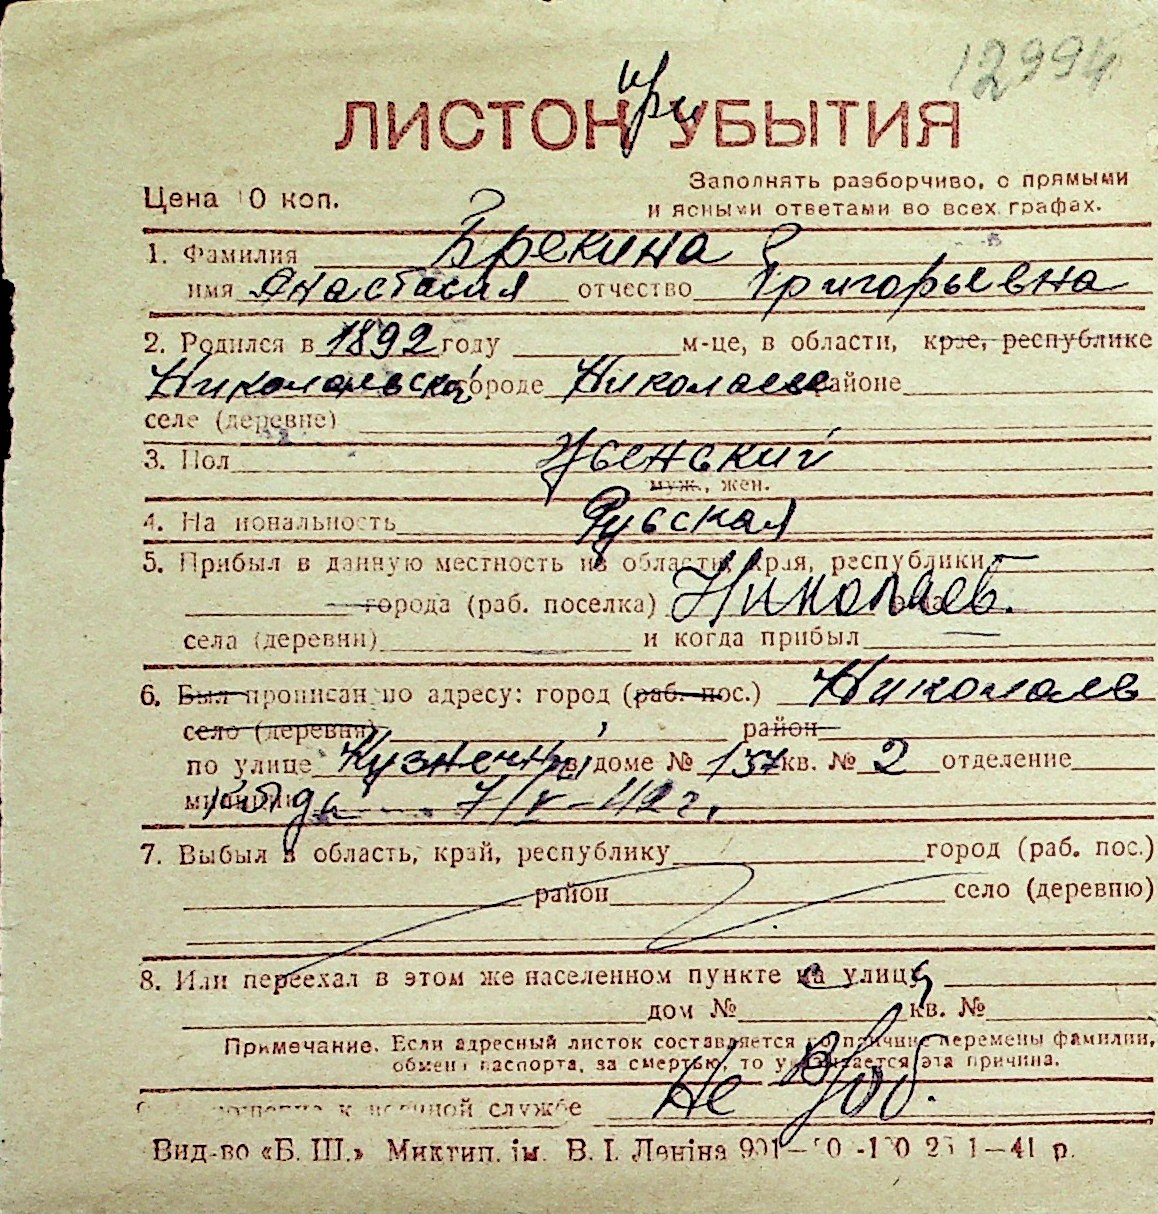 12994
ЛИСТОК при УБЫТИЯ
Цена 10 коп.
Заполнять разборчиво, с прямыми
и ясными ответами во всех графах.
1. Фамилия Брекина
имя Анастасия отчество Григорьевна
2. Родился в 1892 году м-це, в области, крае, республике
Николаевска городе Николаеве районе
селе (деревне)
3. Пол Женский
муж., жен.
4. Национальность Русская
5. Прибыл в данную местность из области, края, республики
города (раб. поселка) Николаев.
села (деревни) и когда прибыл
6. Был прописан по адресу: город (раб. пос.) Николаев
село (деревня) район
по улице Кузнечный в доме № 157 кв. № 2 отделение
милиции 7/V-42 г.
7. Выбыл в область, край, республику город (раб. пос.)
район село (деревню)
8. Или переехал в этом же населенном пункте на улицу
дом № кв. №
Примечание. Если адресный листок составляется по причине перемены фамилии,
обмена паспорта, за смертью, то указывается эта причина.
к военной службе Не
Вид-во «Б. Ш.» Миктип. ім. В. І. Леніна 1—41 р.